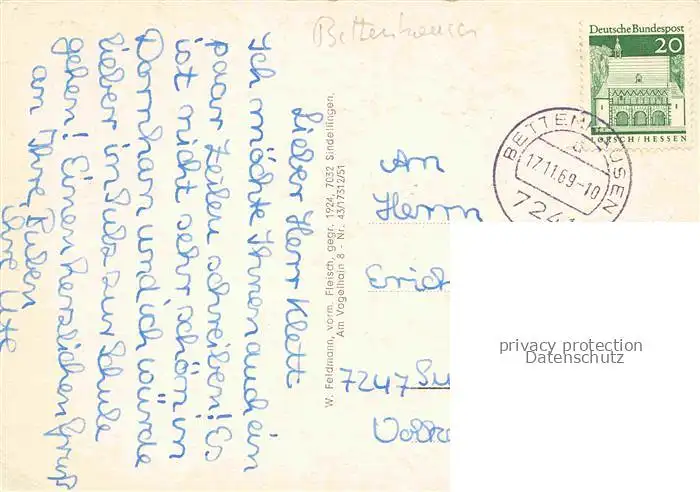 Bettenhausen
Deutsche Bundespost
20
LORSCH/HESSEN
BETTENHAUSEN
17.11.69-10
7241
Lieber Herr Klett
Ich möchte Ihnen auch ein
paar Zeilen schreiben! Es
ist nicht sehr schön in
Dornhan und ich würde
lieber in Sulz zur Schule
gehen! Einen herzlichen Gruß
an Ihre Buben
Ihre Ute
W. Feldmann, vorm. Fleisch, gegr. 1924, 7032 Sindelfingen,
Am Vogelhain 8 - Nr. 43/17312/51
An
Herrn
Erich
7247 Su
privacy protection
Datenschutz